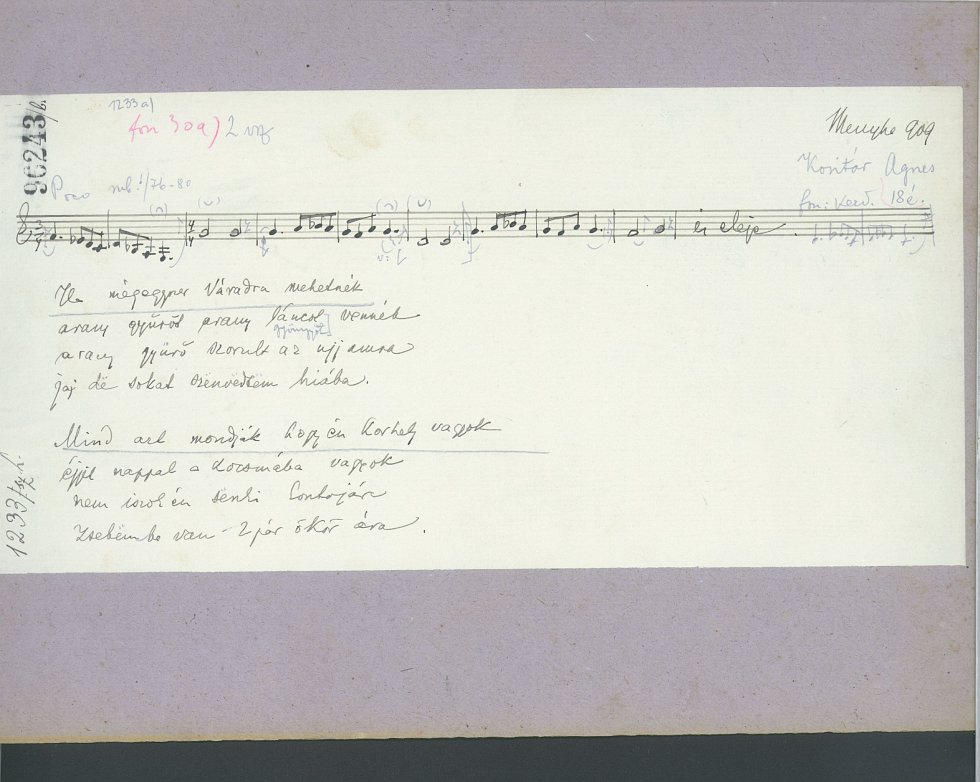 96243/b.
1233 a)
fon 30 a) 2 vsz
Menyhe 909
Kontár Ágnes
18é.
és eleje.
Ha mégegyszer Váradra mehetnék
arany gyűrőt arany láncot vennék
gyöngyöt
arany gyűrő szorult az ujjamra
jaj dë sokat szënvedtem hiába.
Mind azt mondják hogy én korhely vagyok
éjjel nappal a kocsmába vagyok
nem iszok én sënki kontójára
Zsebëmbe van 2 pár ökör ára.
1233/